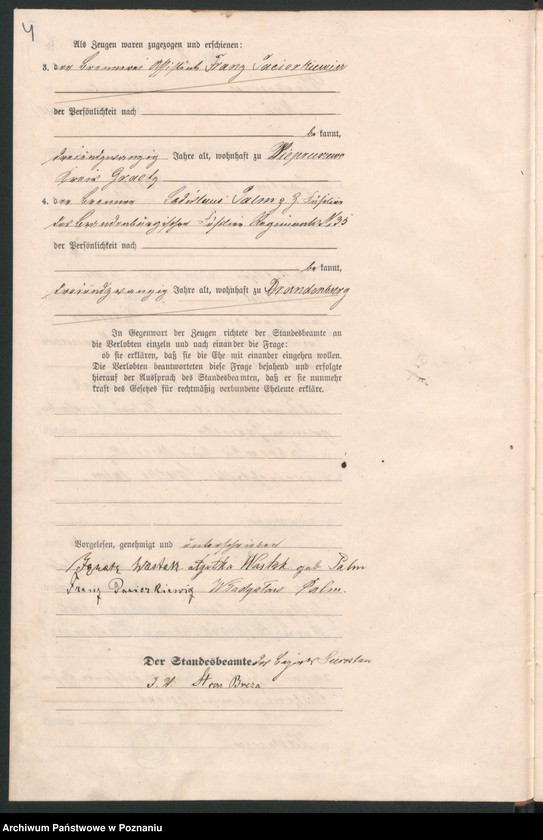 4
Als Zeugen waren zugezogen und erschienen:
3. der Brennerei Assistent Franz Paciorkiewicz
der Persönlichkeit nach
be kannt,
dreiundzwanzig Jahre alt, wohnhaft zu
Kreis Graetz
4. der Brenner Ladislaus Palm z. Z. Füsilier
des Brandenburgischen Füsilier Regiments No 35
der Persönlichkeit nach
be kannt,
dreiundzwanzig Jahre alt, wohnhaft zu Brandenburg
In Gegenwart der Zeugen richtete der Standesbeamte an
die Verlobten einzeln und nach einander die Frage:
ob sie erklären, daß sie die Ehe mit einander eingehen wollen.
Die Verlobten beantworteten diese Frage bejahend und erfolgte
hierauf der Ausspruch des Standesbeamten, daß er sie nunmehr
kraft des Gesetzes für rechtmäßig verbundene Eheleute erkläre.
Vorgelesen, genehmigt und unterschrieben
Ignatz geb Palm
Franz Paciorkiewicz Władysław Palm.
Der Standesbeamte des Bezirks
I. V. von
Archiwum Państwowe w Poznaniu